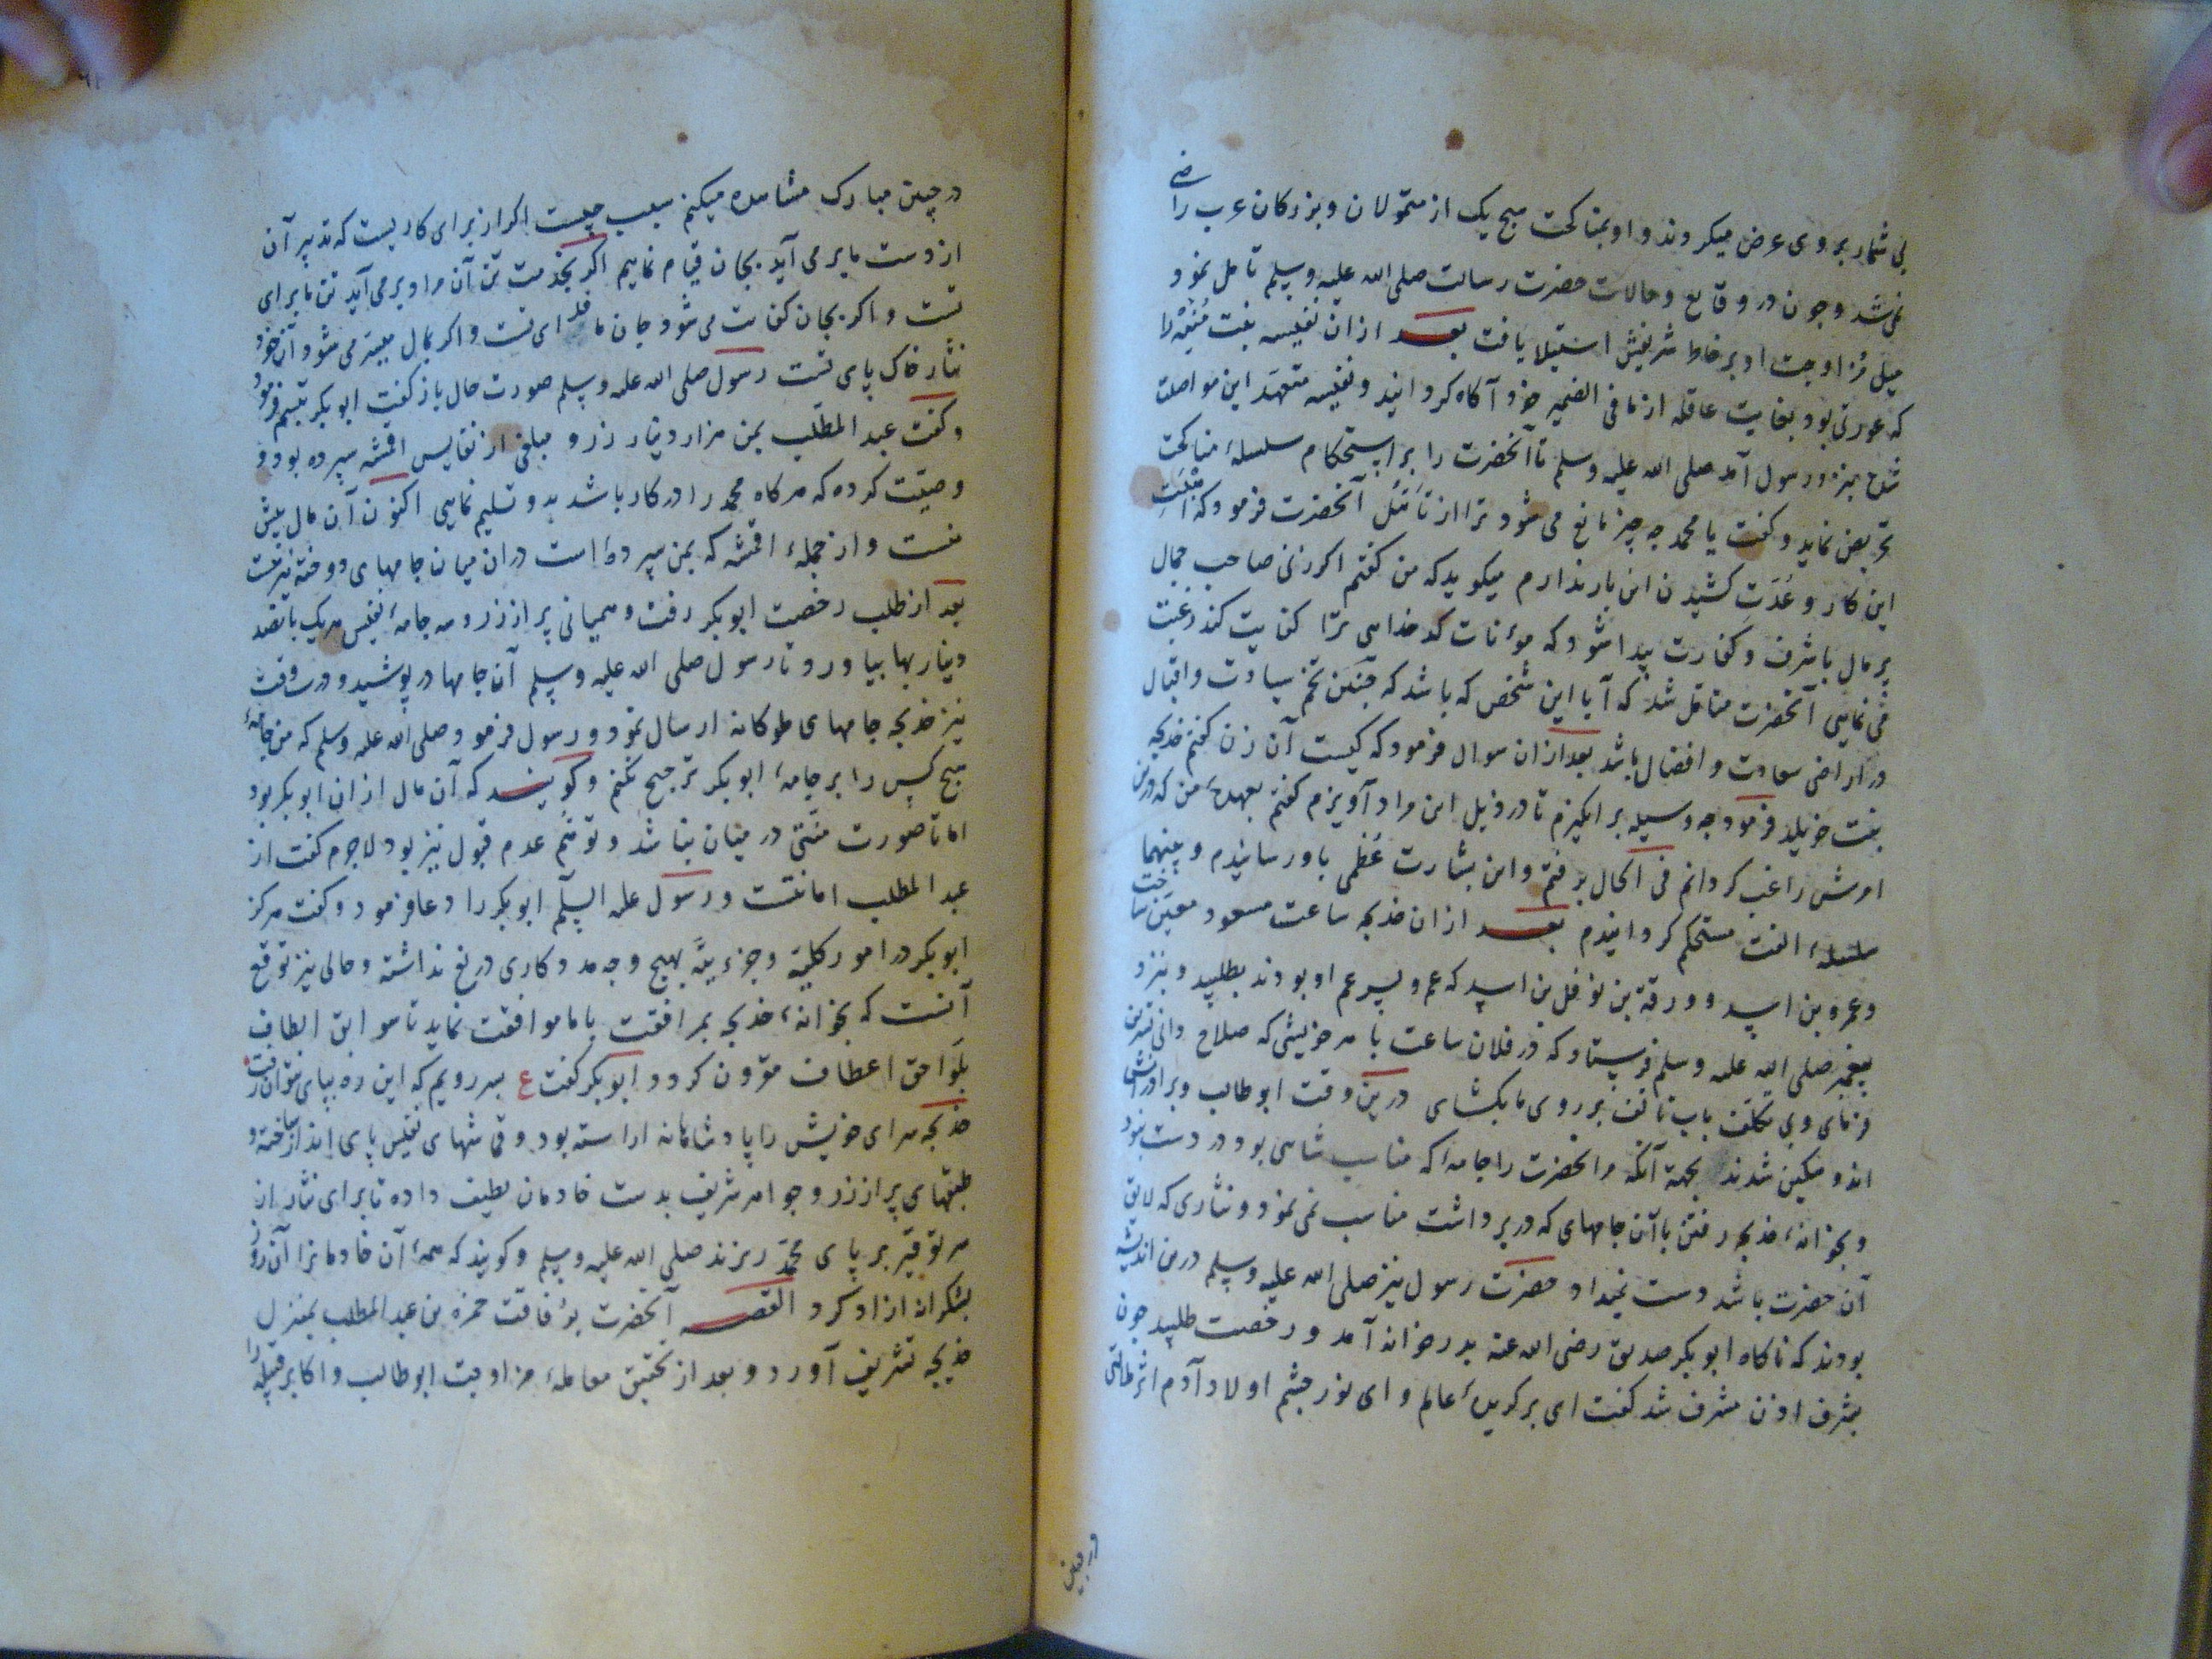 بی شمار بروی عرض میکردند و او بمناکحت هیچ یک از متمولان و بزرکان عرب راضی
نمی شد و چون در وقایع و حالات حضرت رسالت صلی الله علیه وسلم تامل نمود
میل مزاوجت او بر خاطر شریفش استیلا یافت بعد ازان نفیسه بنت منیة را
که عورتی بود بغایت عاقله از ما فی الضمیر خود آکاه کردانید و نفیسه متعهد این مواصلت
شده بنزد رسول آمد صلی الله علیه وسلم تا آنحضرت را بر استحکام سلسلهٔ مناکحت
تحریض نماید و کفت یا محمد چه چیز مانع می شود ترا از تأهل آنحضرت فرمود که اهبت
این کار و عدت کشیدن این بار ندارم میکوید که من کفتم اکر زنی صاحب جمال
پر مال با شرف و کفاءت پیدا شود که مؤنات کدخدایی ترا کفایت کند رغبت
می نمایی آنحضرت متامل شد که آیا این شخص که باشد که چنین تخم سیادت و اقبال
در اراضی سعادت و افضال باشد بعد ازان سوال فرمود که کیست آن زن کفتم خدیجه
بنت خویلد فرمود چه وسیله بر انکیزم تا در ذیل این مراد آویزم کفتم بعهدهٔ من که درین
امرش راغب کردانم فی الحال برفتم و این بشارت عظمی باو رسانیدم و بینهما
سلسلهٔ الفت مستحکم کردانیدم بعد ازان خدیجه ساعت مسعود معین ساخت
و عمرو بن اسد و ورقة بن نوفل بن اسد که عم و پسر عم او بودند بطلبید و بنزد
پیغمبر صلی الله علیه وسلم فرستاد که در فلان ساعت با هر خویشی که صلاح دانی تشریف
فرمای و بی تکلف باب تالف بر روی ما بکشای درین وقت ابوطالب و برادرانش
اندوهکین شدند بجهة آنکه آنحضرت را جامهٔ که مناسب شاهی بود در دست نبود
و بخوانهٔ خدیجه رفتن با آن جامهای که در بر داشت مناسب نمی نمود و نثاری که لایق
آن حضرت باشد دست نمیداد حضرت رسول نیز صلی الله علیه وسلم درین اندیشه
بودند که ناکاه ابوبکر صدیق رضی الله عنه بدر خوانه آمد و رخصت طلبید چون
بشرف اذن مشرف شد کفت ای برکزیدهٔ عالم و ای نور چشم اولاد آدم اثر ملالتی
در جبین
در جبین مبارک مشاهده میکنم سبب چیست اکر از برای کاریست که تدبیر آن
از دست ما بر می آید بجان قیام نماییم اکر بخدمت تن آن مراد بر می آید تن ما برای
تست و اکر بجان کفایت می شود جان ما فدای تست و اکر بمال میسر می شود آن خود
نثار خاک پای تست رسول صلی الله علیه وسلم صورت حال باز کفت ابوبکر تبسم فرمود
و کفت عبد المطلب بمن هزار دینار زر و مبلغی از نفایس اقمشه سپرده بود و
وصیت کرده که هرکاه محمد را در کار باشد بدو تسلیم نمایی اکنون آن مال پیش
منست و از جملهٔ اقمشه که بمن سپرده است دران میان جامهای دوخته نیز هست
بعد از طلب رخصت ابوبکر رفت و همیانی پر از زر و سه جامهٔ نفیس هر یک بانصد
دینار بها بیاورد تا رسول صلی الله علیه وسلم آن جامها در پوشید و در ین وقت
نیز خدیجه جامهای ملوکانه ارسال نمود و رسول فرمود صلی الله علیه وسلم که من جامهٔ
هیچ کس را بر جامهٔ ابوبکر ترجیح نکنم و کویند که آن مال ازان ابوبکر بود
اما تا صورت منتی در میان نباشد و توهم عدم قبول نیز بود لاجرم کفت از
عبد المطلب امانتست و رسول علیه السلم ابوبکر را دعا فرمود و کفت هرکز
ابوبکر در امور کلیه و جزءییه بهیچ وجه مددکاری دریغ نداشته و حالی نیز توقع
آنست که بخوانهٔ خدیجه بمرافقت با ما موافقت نماید تا سوابق الطاف
بلواحق اعطاف مقرون کردد ابوبکر کفت ع بسر رویم که این ره بپای نتوان رفت
خدیجه سرای خویش را پادشاهانه اراسته بود و قماشهای نفیس پای انداز ساخته و
طبقهای پر از زر و جواهر شریف بدست خادمان لطیف داده تا برای نثار از
سر توقیر بر پای محمد ریزند صلی الله علیه وسلم و کویند که همهٔ آن خادمانرا آن روز
بشکرانه ازاد کرد القصه آنحضرت برفاقت حمزه بن عبد المطلب بمنزل
خدیجه تشریف آورد و بعد از تحقیق معاملهٔ مزاوجت ابوطالب و اکابر قبیله را